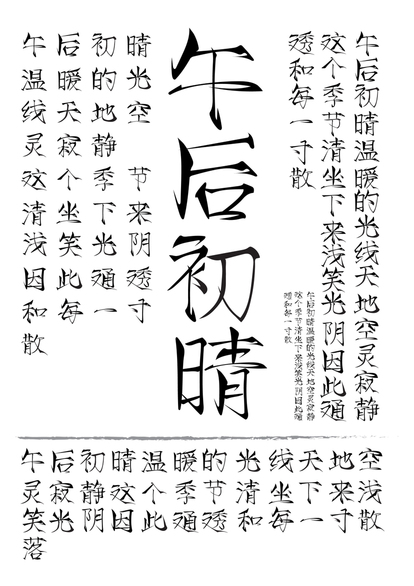 午后初晴温暖的光线天地空灵寂静
这个季节清坐下来浅笑光阴因此通
透和每一寸散
午后初晴温暖的光线天地空灵寂静
这个季节清坐下来浅笑光阴因此通
透和每一寸散
午后初晴
午后初晴
温暖的光
线天地空
灵寂静
这个季节
清坐下来
浅笑光阴
因此通透
和每一寸
散
午后初晴温暖的光线天地空
灵寂静这个季节清坐下来浅
笑光阴因此通透和每一寸散
落